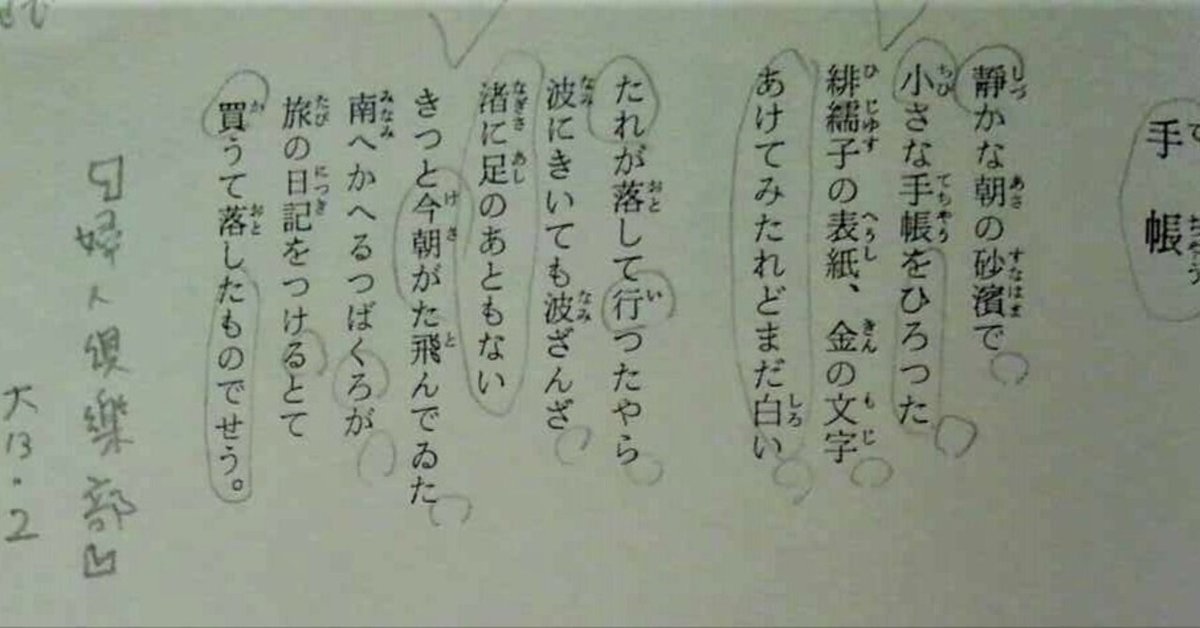 手帳
静かな朝の砂濱で
小さな手帳をひろつた
緋繻子の表紙、金の文字
あけてみたれどまだ白い
たれが落して行つたやら
波にきいても波ざんざ
渚に足のあともない
きつと今朝がた飛んでゐた
南へかへるつばくろが
旅の日記をつけるとて
買うて落したものでせう。
『婦人倶樂部』
大13.2